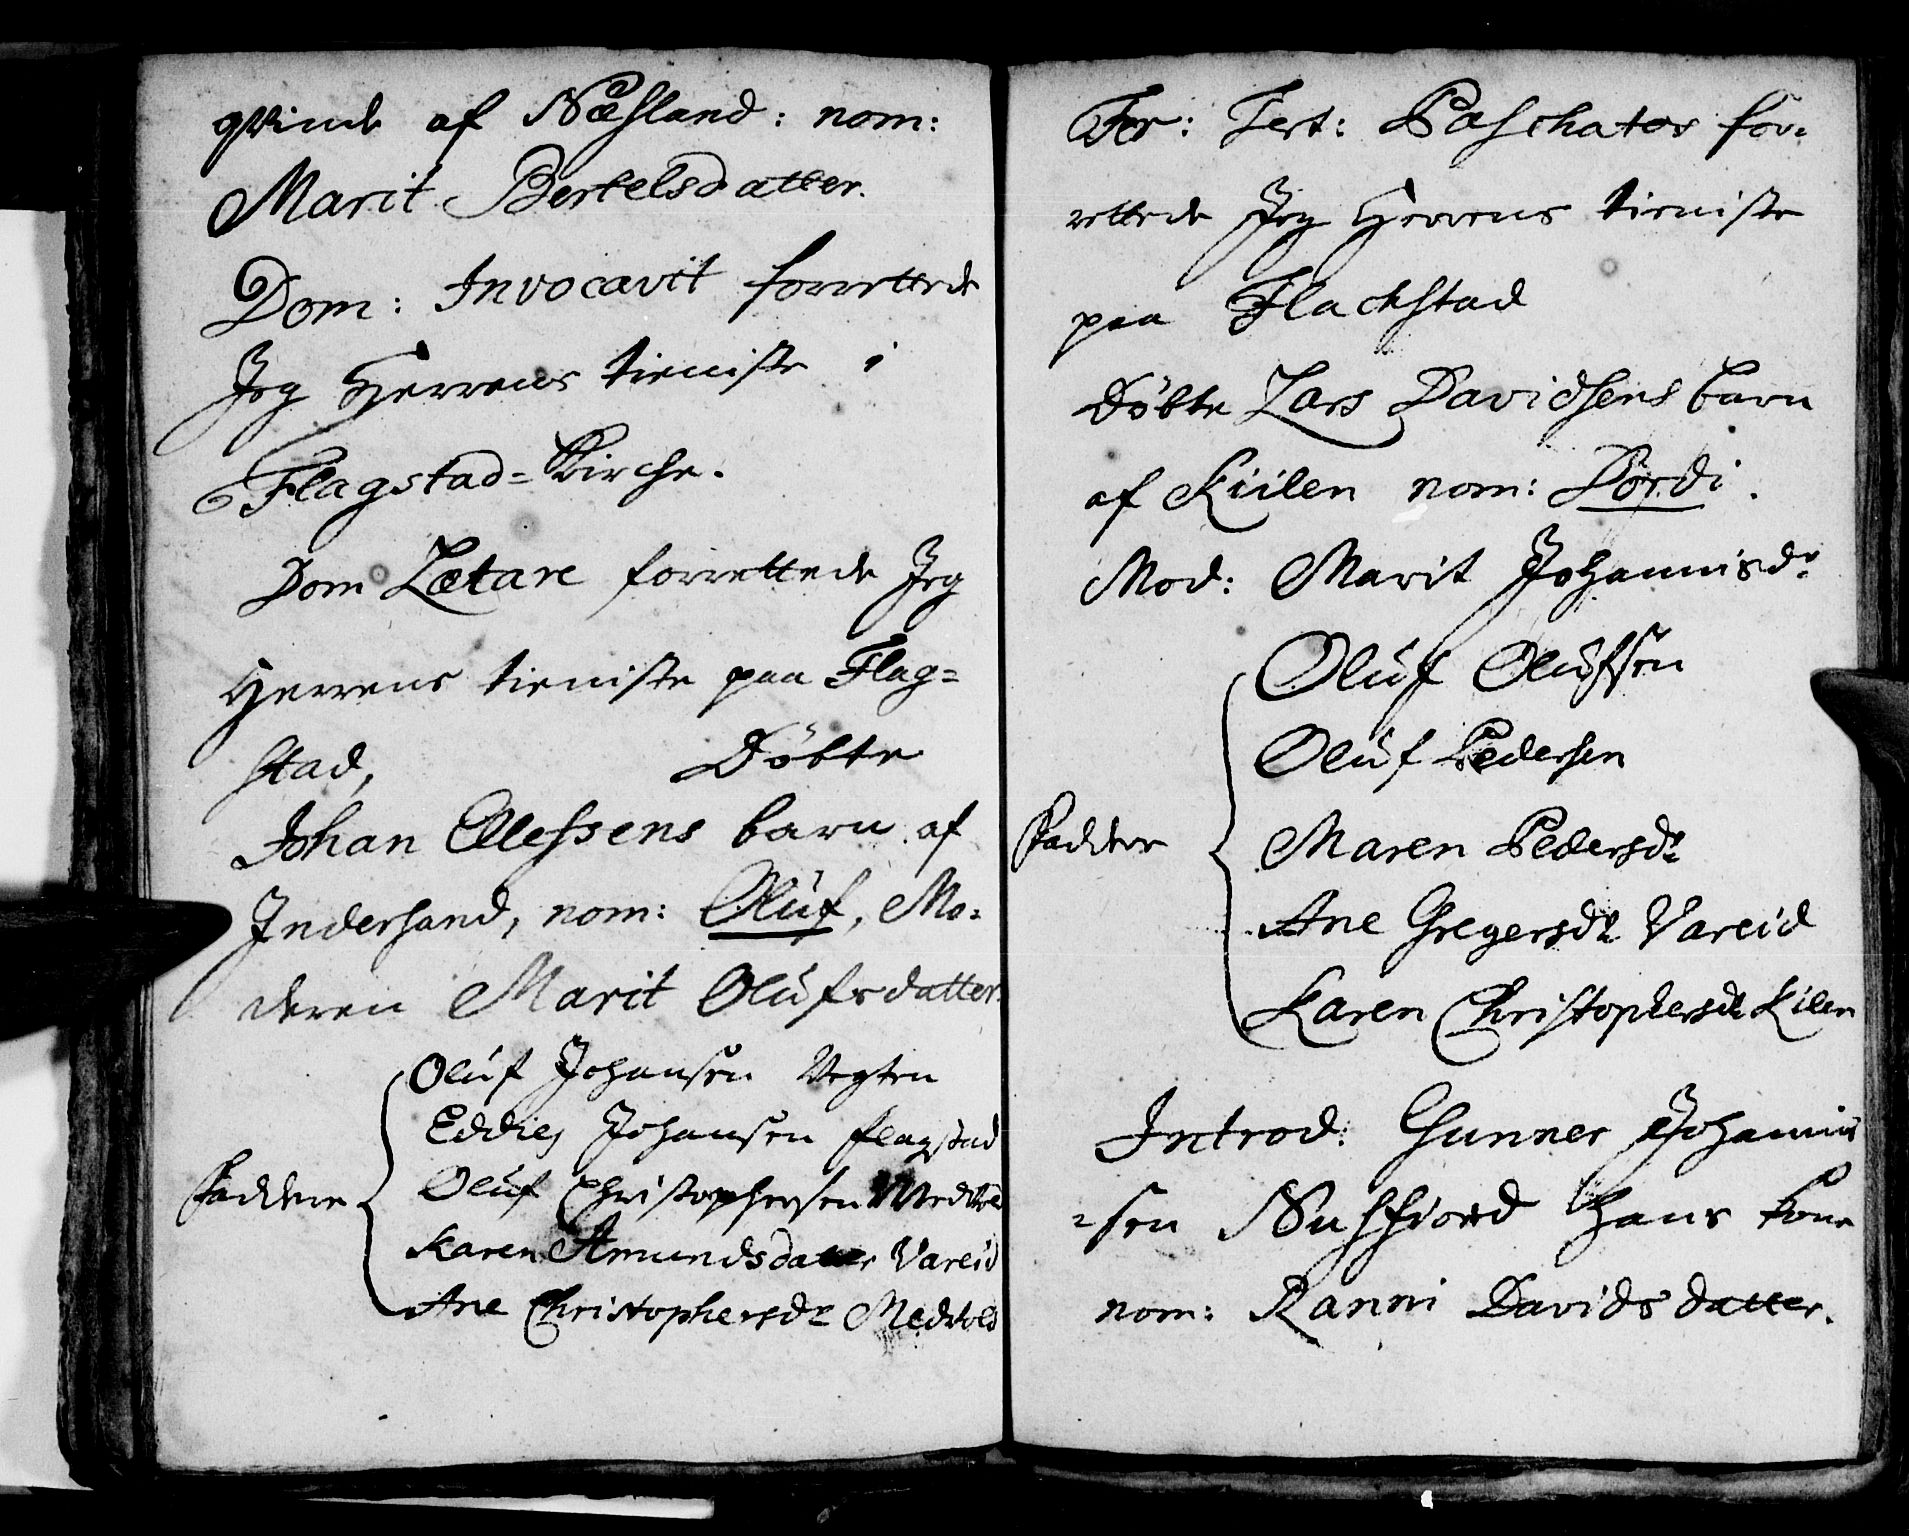 qvinde af Næsland: nom:
Marit Bertelsdatter.
Dom: Invocavit forrettede
Jeg Herrens tieniste i
Flagstad=Kirche.
Dom Lætare forrettede Jeg
Herrens tieniste paa Flag=
stad, Døbte
Johan Ellessens barn af
Indersand, nom: Oluf, Mo=
deren Marit Olufsdatter.
Oluf Johansen Vegten
Johansen flagstad
Faddere Oluf Christophersen
Karen Amundsdatter Vareid
Ane Christophersdr Medvold
Fer: Tert: Paschatos for=
rettede Jeg Herrens tieniste
paa Flachstad
Døbte Lars Davidsens barn
af Kiilen nom: Dordi.
Mod: Marit Johannisdr
Oluf Olufsen
Oluf Pedersen
Faddere Maren Pedersdr
Ane Gregersdr Vareid
Karen Christophersdr Kilen
Introd: Gunner Johannis
=sen Nusfiord hans kone
nom: Ranni Davidsdatter.